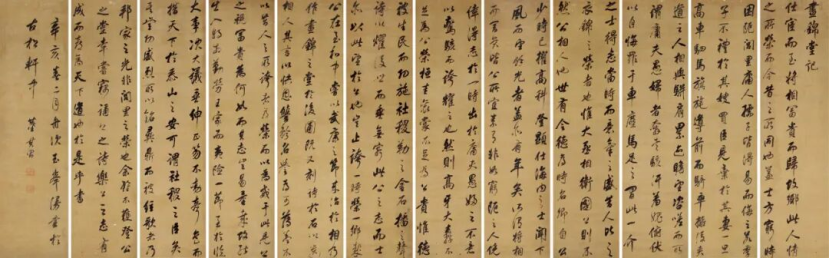 晝錦堂記
仕宦而至將相富貴而歸故鄉此人情
之所榮而今昔之所同也蓋士方窮時
困阨閭里庸人孺子皆得易而侮之若季
子不禮於其嫂買臣見棄於其妻一旦
高車駟馬旗旄導前而騎卒擁後夾
道之人相與駢肩累迹瞻望咨嗟而所
謂庸夫愚婦者奔走駭汗羞愧俯伏
以自悔罪于車塵馬足之間此一介
之士得志當時而意氣之盛昔人比之
衣錦之榮者也惟大丞相衛國公則不
然公相人也世有令德為時名卿自公
少時已擢高科登顯仕海內之士聞下
風而望餘光者蓋亦有年矣所謂將相
而富貴皆公所宜素有非如窮阨之人僥
倖得志於一時出於庸夫愚婦之不意
以驚駭而誇耀之也然則高牙大纛不
足為公榮桓圭袞裳不足為公貴惟德
被生民而功施社稷勒之金石播之聲
詩以耀後世而垂無窮此公之志而士
亦以此望於公也豈止誇一時榮一鄉哉
公在至和中嘗以武康之節來治於相乃
作晝錦之堂于後圃既又刻詩於石以遺
相人其言以快恩讐矜名譽為可薄蓋不
以昔人所誇者為榮而以為戒于此見公
之視富貴為何如而其志豈易量哉故能
出入將相勤勞王家而夷險一節至于臨
大事決大議垂紳正笏不動聲色而
措天下於泰山之安可謂社稷之臣矣
其豐功盛烈所以銘彝鼎而被絃歌者乃
邦家之光非閭里之榮也余雖不獲登公
之堂幸嘗竊誦公之詩樂公之志有
成而喜為天下道也於是乎書
辛亥春二月舟次玉峯漫書於
古柏軒中
董其昌